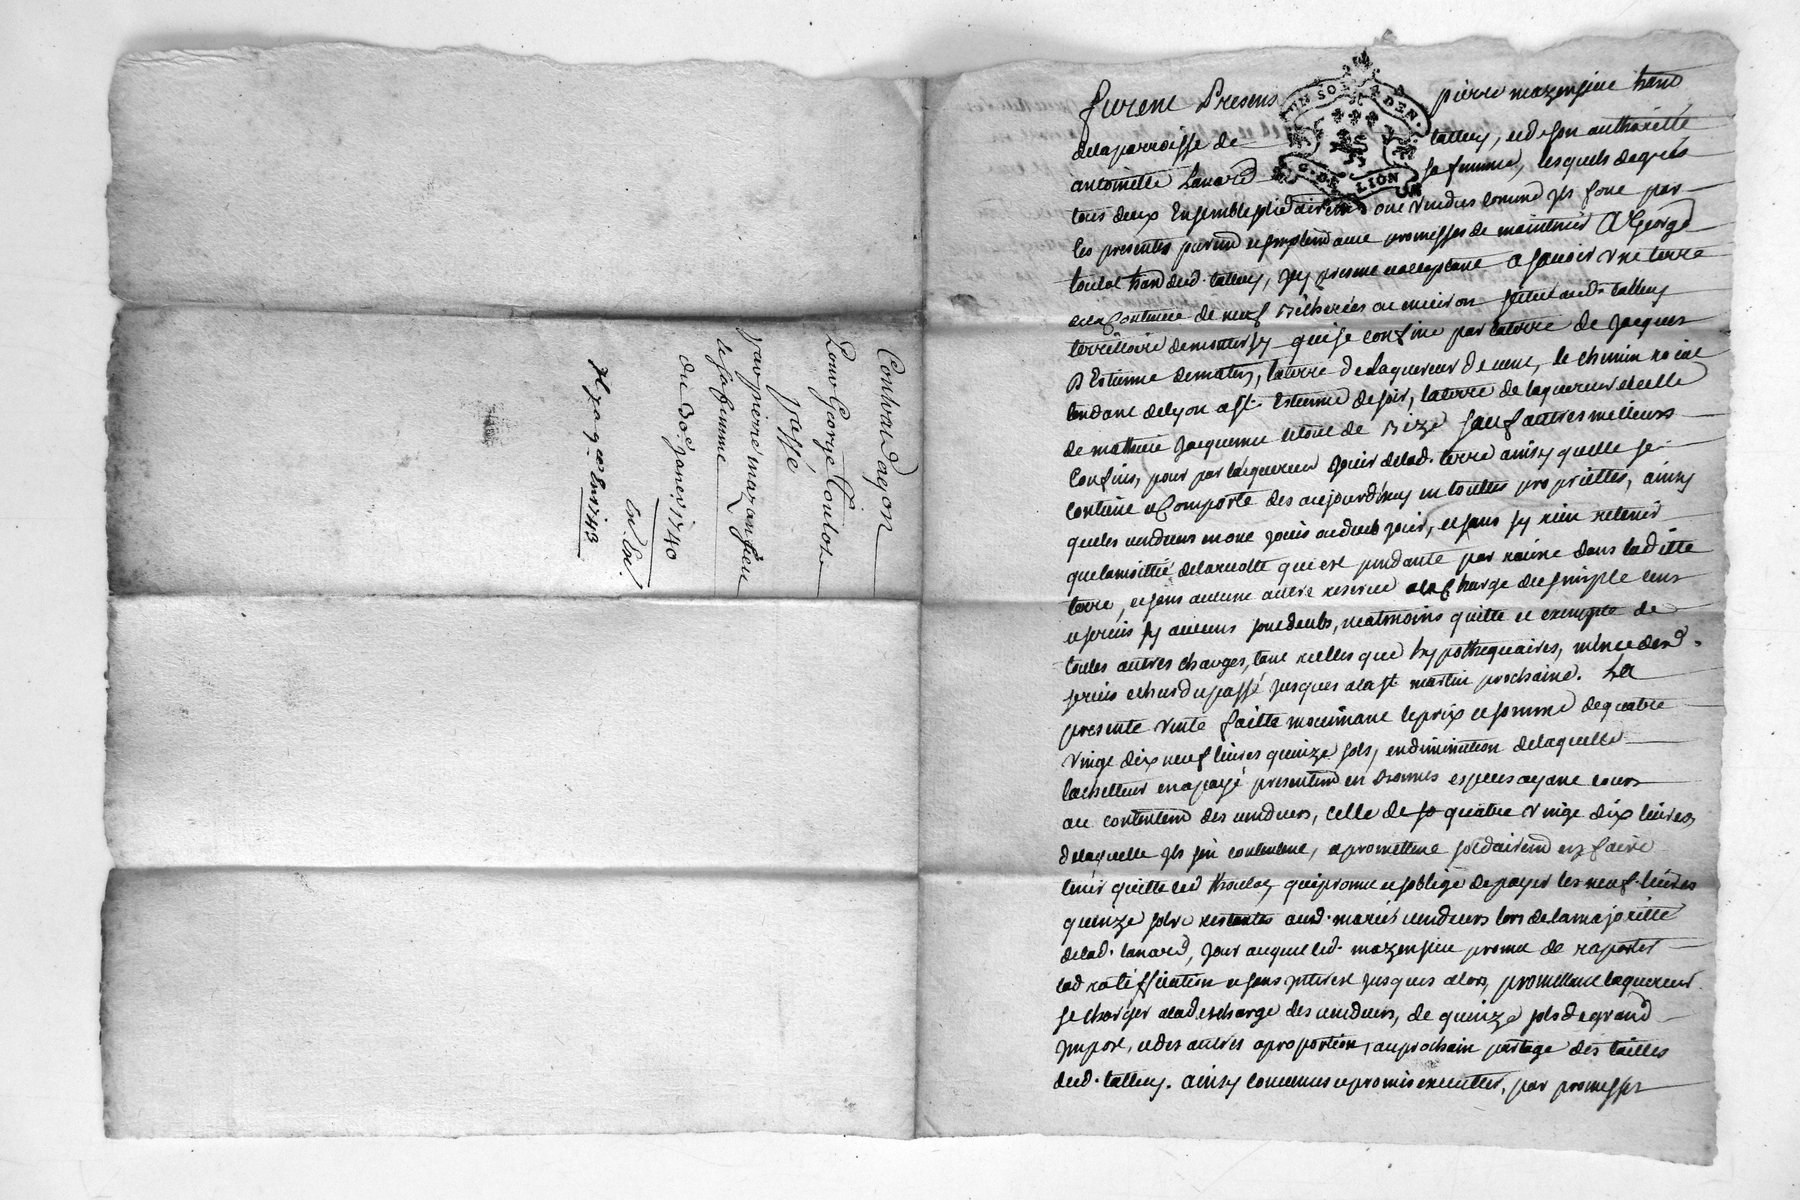 Contrat daqon
Pour George Toulot
Passé
Par pierre mazanfieu
et sa femme
du 30e janer 1740
furent Presens pierre mazensieu hant
UN SOL 4 DEN.
G. DE LION
dela parroisse de talluy, et de son authorité
antoinette Lanard sa femme, lesquels de grés
tous deux Ensemble solidairemt ont vendus comme Ils font par
les presentes purement et simplement avec promesses de maintenir A George
toulot hant dud. talluy, Icy present et acceptant a sçavoir Une terre
de la Contenue de neuf Bicherées ou environ située aud. talluy
territoire de montersy qui se confine par la terre de Jacques
D'Estienne de matin, la terre de Laquereur de vent, le chemin
tendant de lyon a st. Estienne de soir, la terre de laquereur et celle
de mathieu Jacquemet de Bize sauf autres meilleurs
Confins, pour par lacquereur Jouir de lad. terre ainsy quelle se
contient et Comporte des aujourd'huy en touttes proprietés, ainsy
que les vendeurs en ont Jouis ou deub Jouir, et sans sy rien retenir
que la moittié de la recolte qui est pendante par racine dans laditte
terre, et sans aucune autre reserve a la Charge du simple cens
et servis sy aucuns sont deubs, neatmoins quitte et exempte de
toutes autres charges, tant reelles que hypothequaires, même desd.
servis echus du passé Jusques a la st martin prochaine. La
presente Vente faitte moienant le prix et somme de quatre
Vingt dix neuf livres quinze sols, en diminution de laquelle
l'achetteur en a payé presentemt en Bonnes especes ayant cours
au contentemt des vendeurs, celle de quatre Vingt dix livres,
de laquelle Ils sen contentent, et promettent solidairemt en faire
tenir quitte led thoulot, qui promet et soblige de payer les neuf livres
quinze sols restantes aud. mariés vendeurs lors de la majorité
delad. Lanard, Jour auquel led. mazensieu promet de raporter
lad ratiffication et sans Interest Jusques alors, promettant laquereur
se charger a la descharge des vendeurs, de quinze sols de grand
Impost, et des autres a proportion, au prochain partage des tailles
dud. talluy. ainsy convenus et promis executter, par promesses